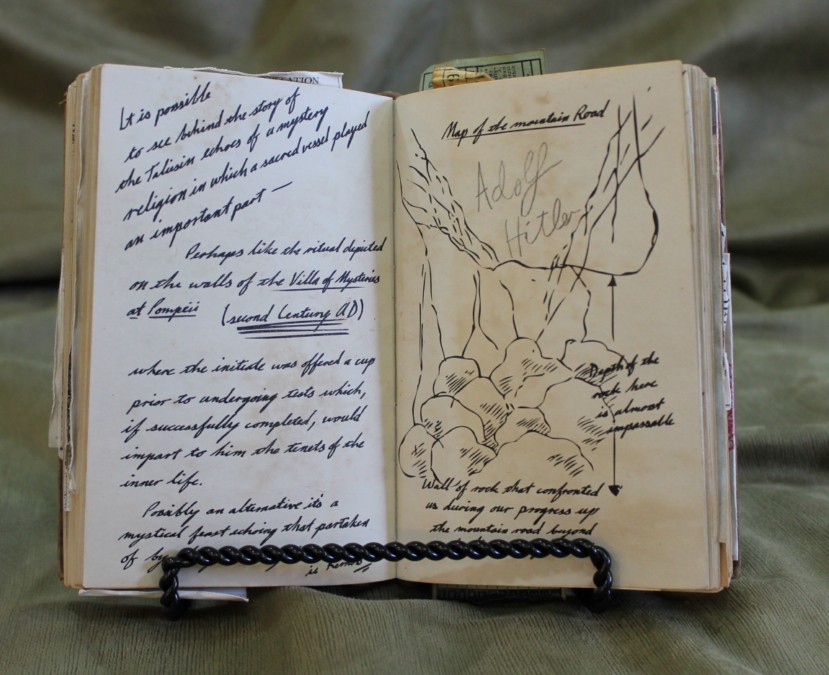 It is possible
to see behind the story of
the Taliesin echoes of a mystery
religion in which a sacred vessel played
an important part —
Perhaps like the ritual depicted
on the walls of the Villa of Mysteries
at Pompeii (second Century AD)
where the initiate was offered a cup
prior to undergoing tests which,
if successfully completed, would
impart to him the tenets of the
inner life.
Possibly an alternative its a
mystical feast echoing that partaken
of by
is
Map of the mountain Road
Adolf
Hitler
Depth of the
rock here
is almost
impassable
Wall of rock that confronted
us during our progress up
the mountain road beyond